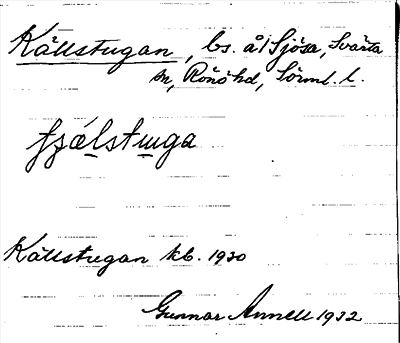 Källstugan, bs. å/Sjösa, Svärta
sn, Rönö hd, Sörml. l.
Källstugan kb. 1930
Gunnar Annell 1932